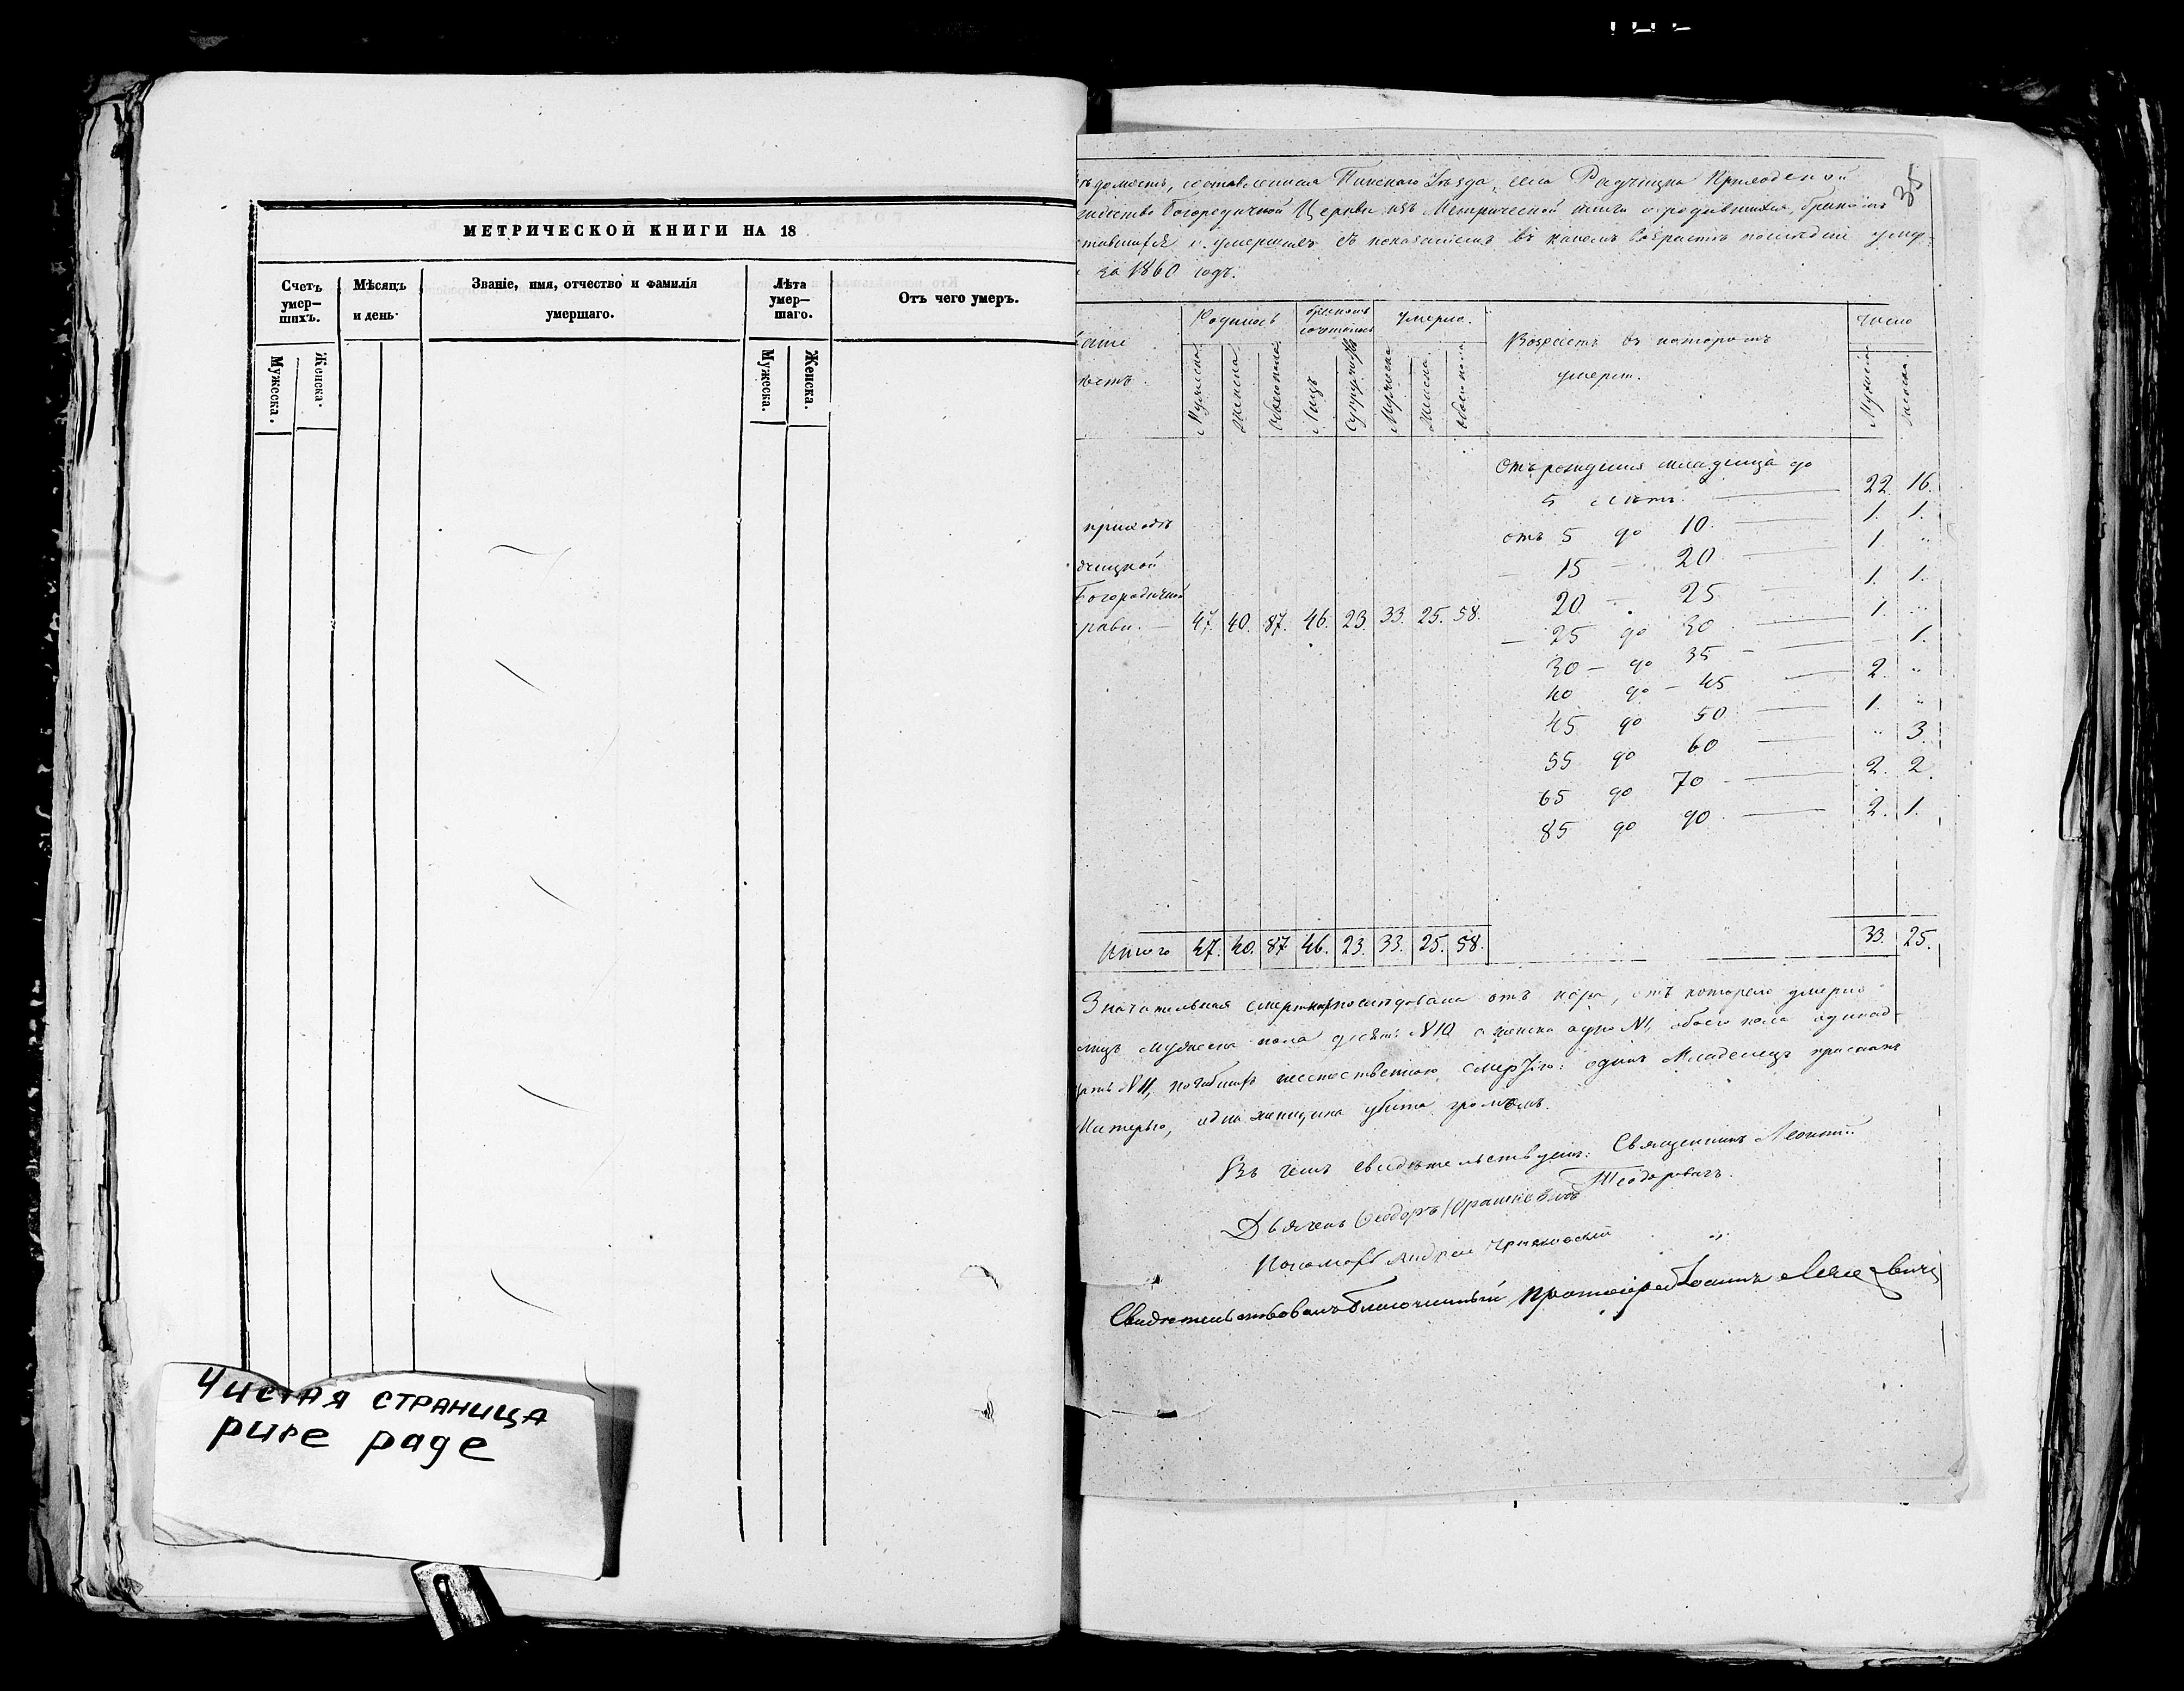 МЕТРИЧЕСКОЙ КНИГИ НА 18
Счетъ умер— шихъ.
Мѣсяцъ и день.
Званіе, имя, отчество и фамилія умершаго.
Лѣта умер— шаго.
Отъ чего умеръ.
Мужеска.
Женска.
Мужеска.
Женска.
Чистая страница
pure page
35
составленная Пинскаго Уѣзда, села Радчицка Приходской
Богородичной Церкви изъ Метрической книги о родившихся, бракомъ
и умершихъ съ показаніемъ въ какомъ возрастѣ послѣдніе умер-
за 1860 годъ.
Родилось
бракомъ сочеталось
Умерло.
Возрастъ въ которомъ
умерли.
Число
Мужеска
Женска
Обоего пола
Лицъ
Супружествъ
Мужеска
Женска
Обоего пола
Мужеска
Женска
Отъ рожденія младенца до
5 лѣтъ. 22. 16.
отъ 5 до 10. 1. 1.
— 15 — 20 1. "
20 — 25 1. 1.
— 25 до 30 1. "
30 — до 35 — 1.
40 до — 45 2. "
45 до 50 1. "
55 до 60 " 3
65 до 70 2. 2.
85 до 90 2. 1.
приходъ
Богородичной
47. 40. 87. 46. 23. 33. 25. 58.
Итого 47. 40. 87 46. 23. 33. 25. 58. 33. 25.
Значительная смертность послѣдовала отъ кори, отъ которой умерло
лицъ мужеска пола десять №10 а женска одно №1, обоего пола одинад-
цать №11, погибшихъ неестественною смертію: одинъ Младенецъ приспанъ
Матерью, одна женщина убита громомъ.
Въ чемъ свидѣтельствуемъ: Священникъ Леонтій
Теодоровичъ.
Дьячекъ Ѳеодоръ
Пономарь Андрей
Свидетельствовалъ Благочинный Протоіерей Іоаннъ